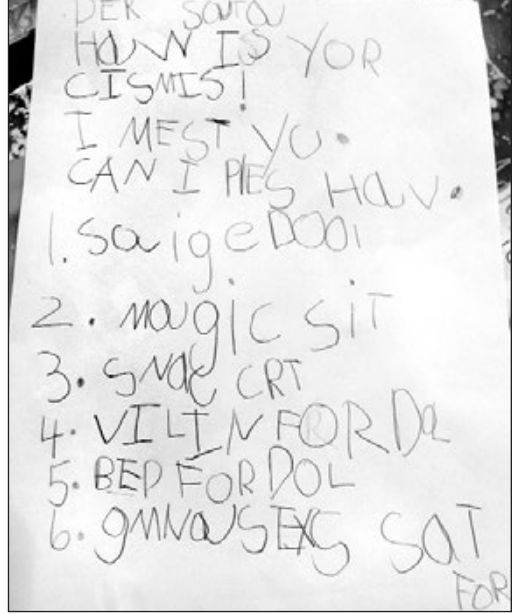 DER Santa
HAVN IS YOR
CISMIS!
I MEST YO.
CAN I PLES HAV.
1. Saige DOOl
2. magic SiT
3. SNAC CRT
4. VILIN FOR DOL
5. BED FOR DOL
6. gMNaSEXS SaT
FOR